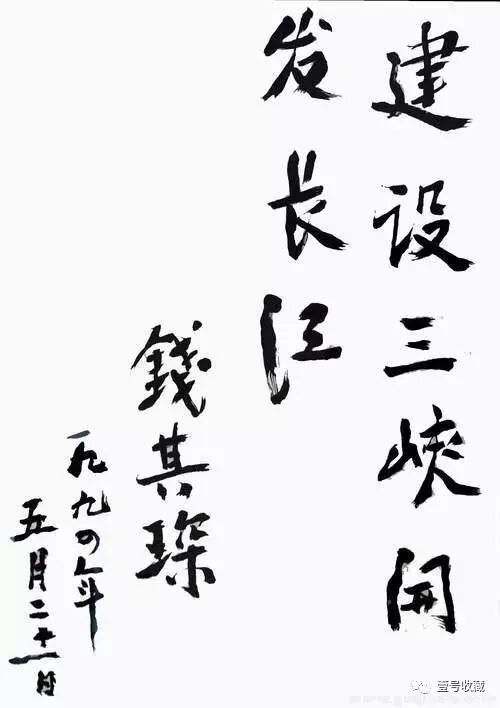 建设三峡开
发长江
錢其琛
一九九四年
五月二十一日
壹号收藏